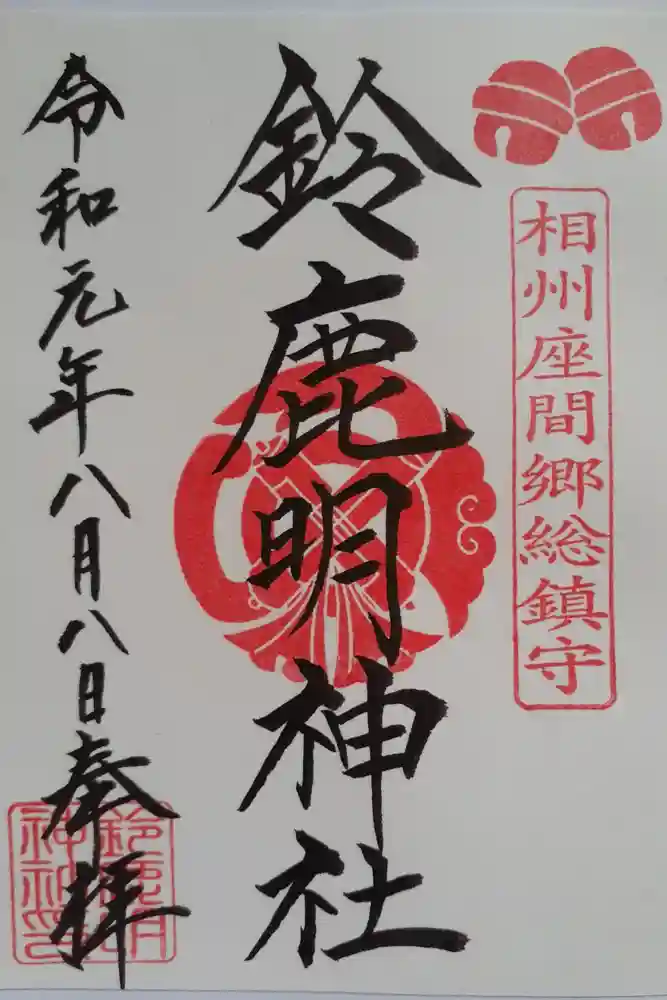 相州座間郷総鎮守
鈴鹿明神社
令和元年八月八日奉拝
鈴鹿明神社印